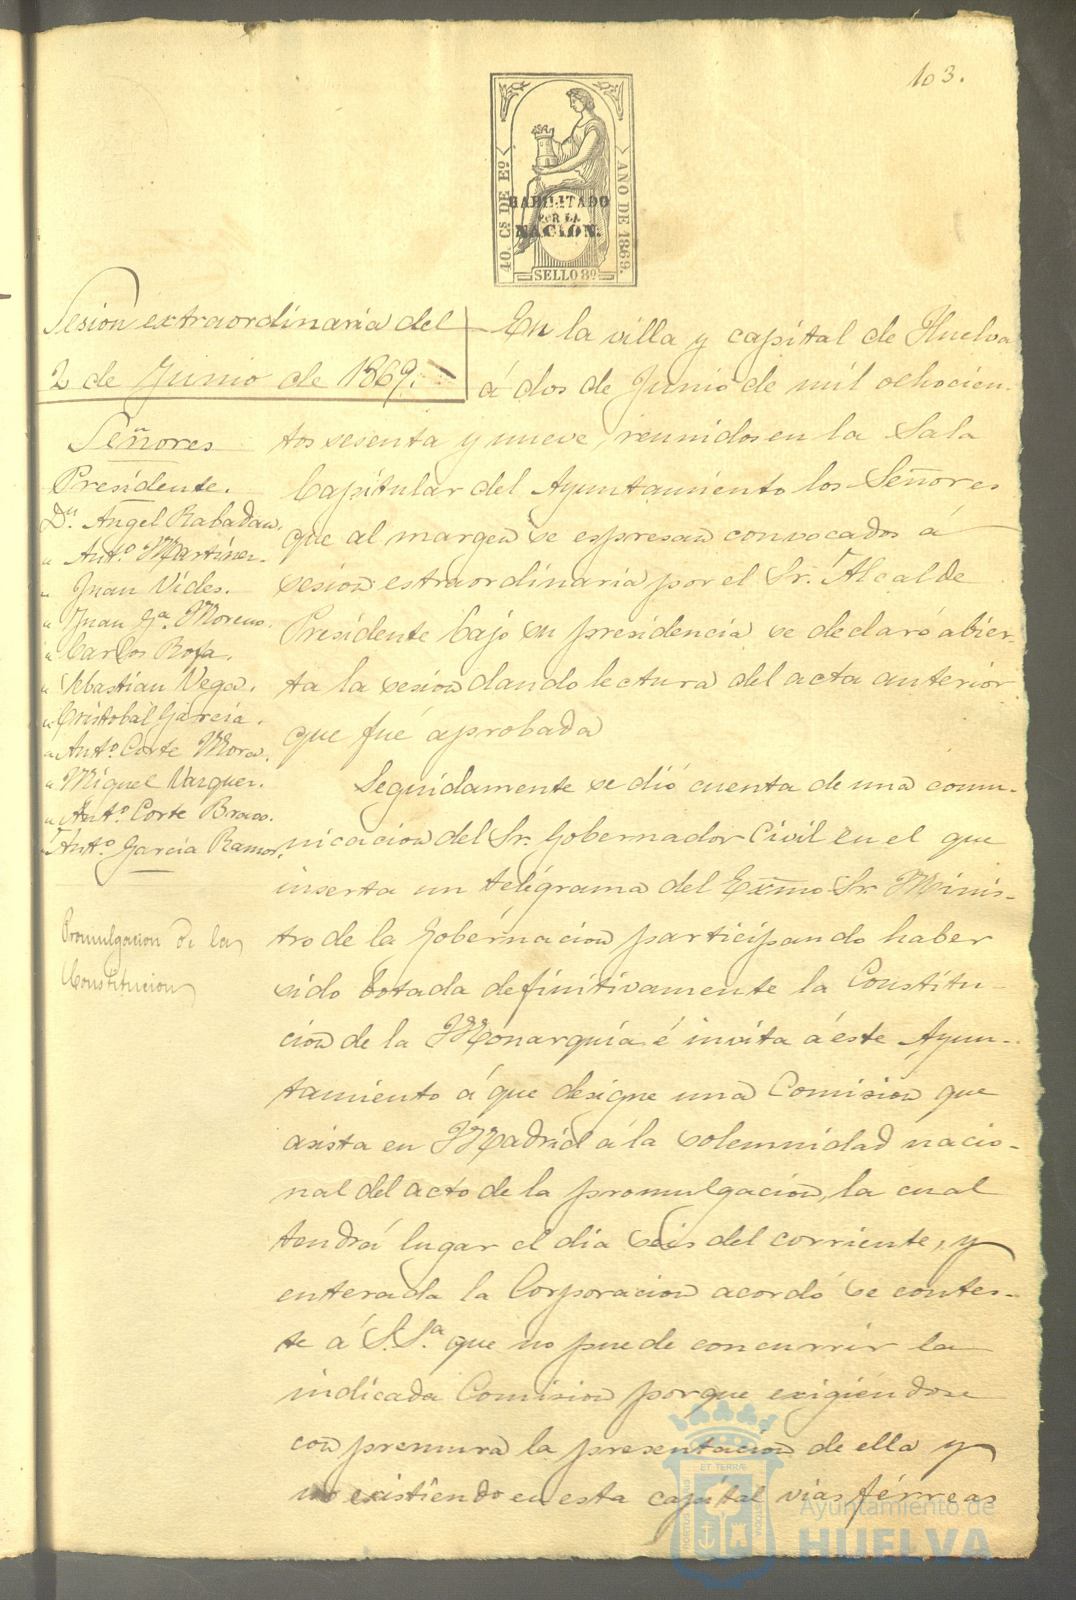 103.
40. Cs DE Eº
AÑO DE 1869.
HABILITADO
POR LA
NACION.
SELLO 8º
Sesion extraordinaria del
2 de Junio de 1869.
Señores
Presidente.
Dn. Angel Rabadan.
" Antº Martinez.
" Juan Vides.
" Juan Gª Moreno.
" Carlos Roja.
" Sebastian Vega.
" Cristobal Garcia.
" Antº Corte Mora.
" Miguel Vazquez.
" Antº Corte Bravo.
" Antº Garcia Ramos.
Promulgacion de la
Constitucion
En la villa y capital de Huelva
á dos de Junio de mil ochocien-
tos sesenta y nueve, reunidos en la Sala
Capitular del Ayuntamiento los Señores
que al margen se espresan convocados á
sesion estraordinaria por el Sr. Alcalde
Presidente bajo su presidencia se declaró abier-
ta la sesion dando lectura del acta anterior
que fué aprobada
Seguidamente se dió cuenta de una comu-
nicacion del Sr. Gobernador Civil en el que
inserta un telégrama del Exmo Sr. Minis-
tro de la Gobernacion participando haber
sido botada definitivamente la Constitu-
cion de la Monarquia é invita á este Ayun-
tamiento á que designe una Comision que
asista en Madrid á la solemnidad nacio-
nal del acto de la promulgacion, la cual
tendrá lugar el dia seis del corriente, y
enterada la Corporacion acordó se contes-
te á S.Sª. que no puede concurrir la
indicada Comision porque exigiéndose
con premura la presentacion de ella y
no existiendo en esta capital vias férreas
ET TERRÆ
PORTUS
CUSTODIA
Ayuntamiento de
HUELVA